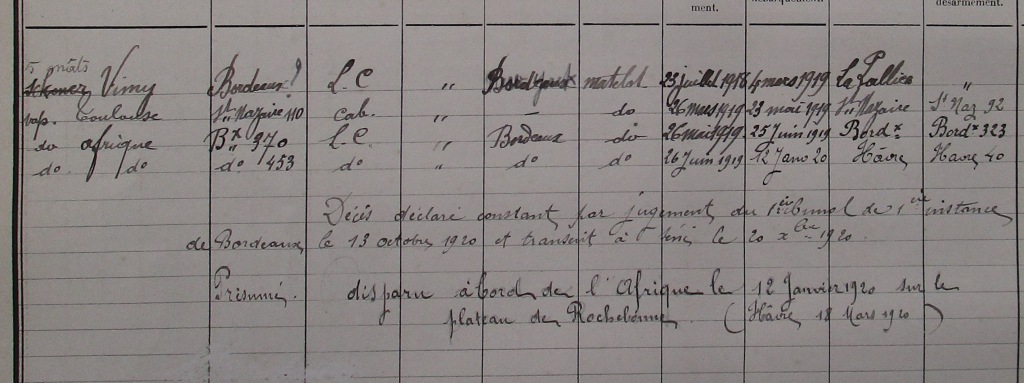 ment. désarmement.
5 mâts
Vimy Bordeaux ? L.C " matelot 23 juillet 1918 4 mars 1919 La Pallice "
vap. Toulouse St Nazaire 110 Cab. " — do 26 mars 1919 23 mai 1919 St Nazaire St Naz 92
do afrique Bx 370 L.C. " Bordeaux do 26 mai 1919 25 juin 1919 Bordx Bordx 323
do. do do 453 do " do do 26 Juin 1919 12 Janv 20 Hâvre Havre 40
Décès déclaré constant par jugement du tribunal de 1ère instance
de Bordeaux le 13 octobre 1920 et transcrit à le 20 xbre 1920.
Présumé. disparu à bord de l'Afrique le 12 Janvier 1920 sur le
plateau de Rochebonne. (Hâvre 18 Mars 1920)